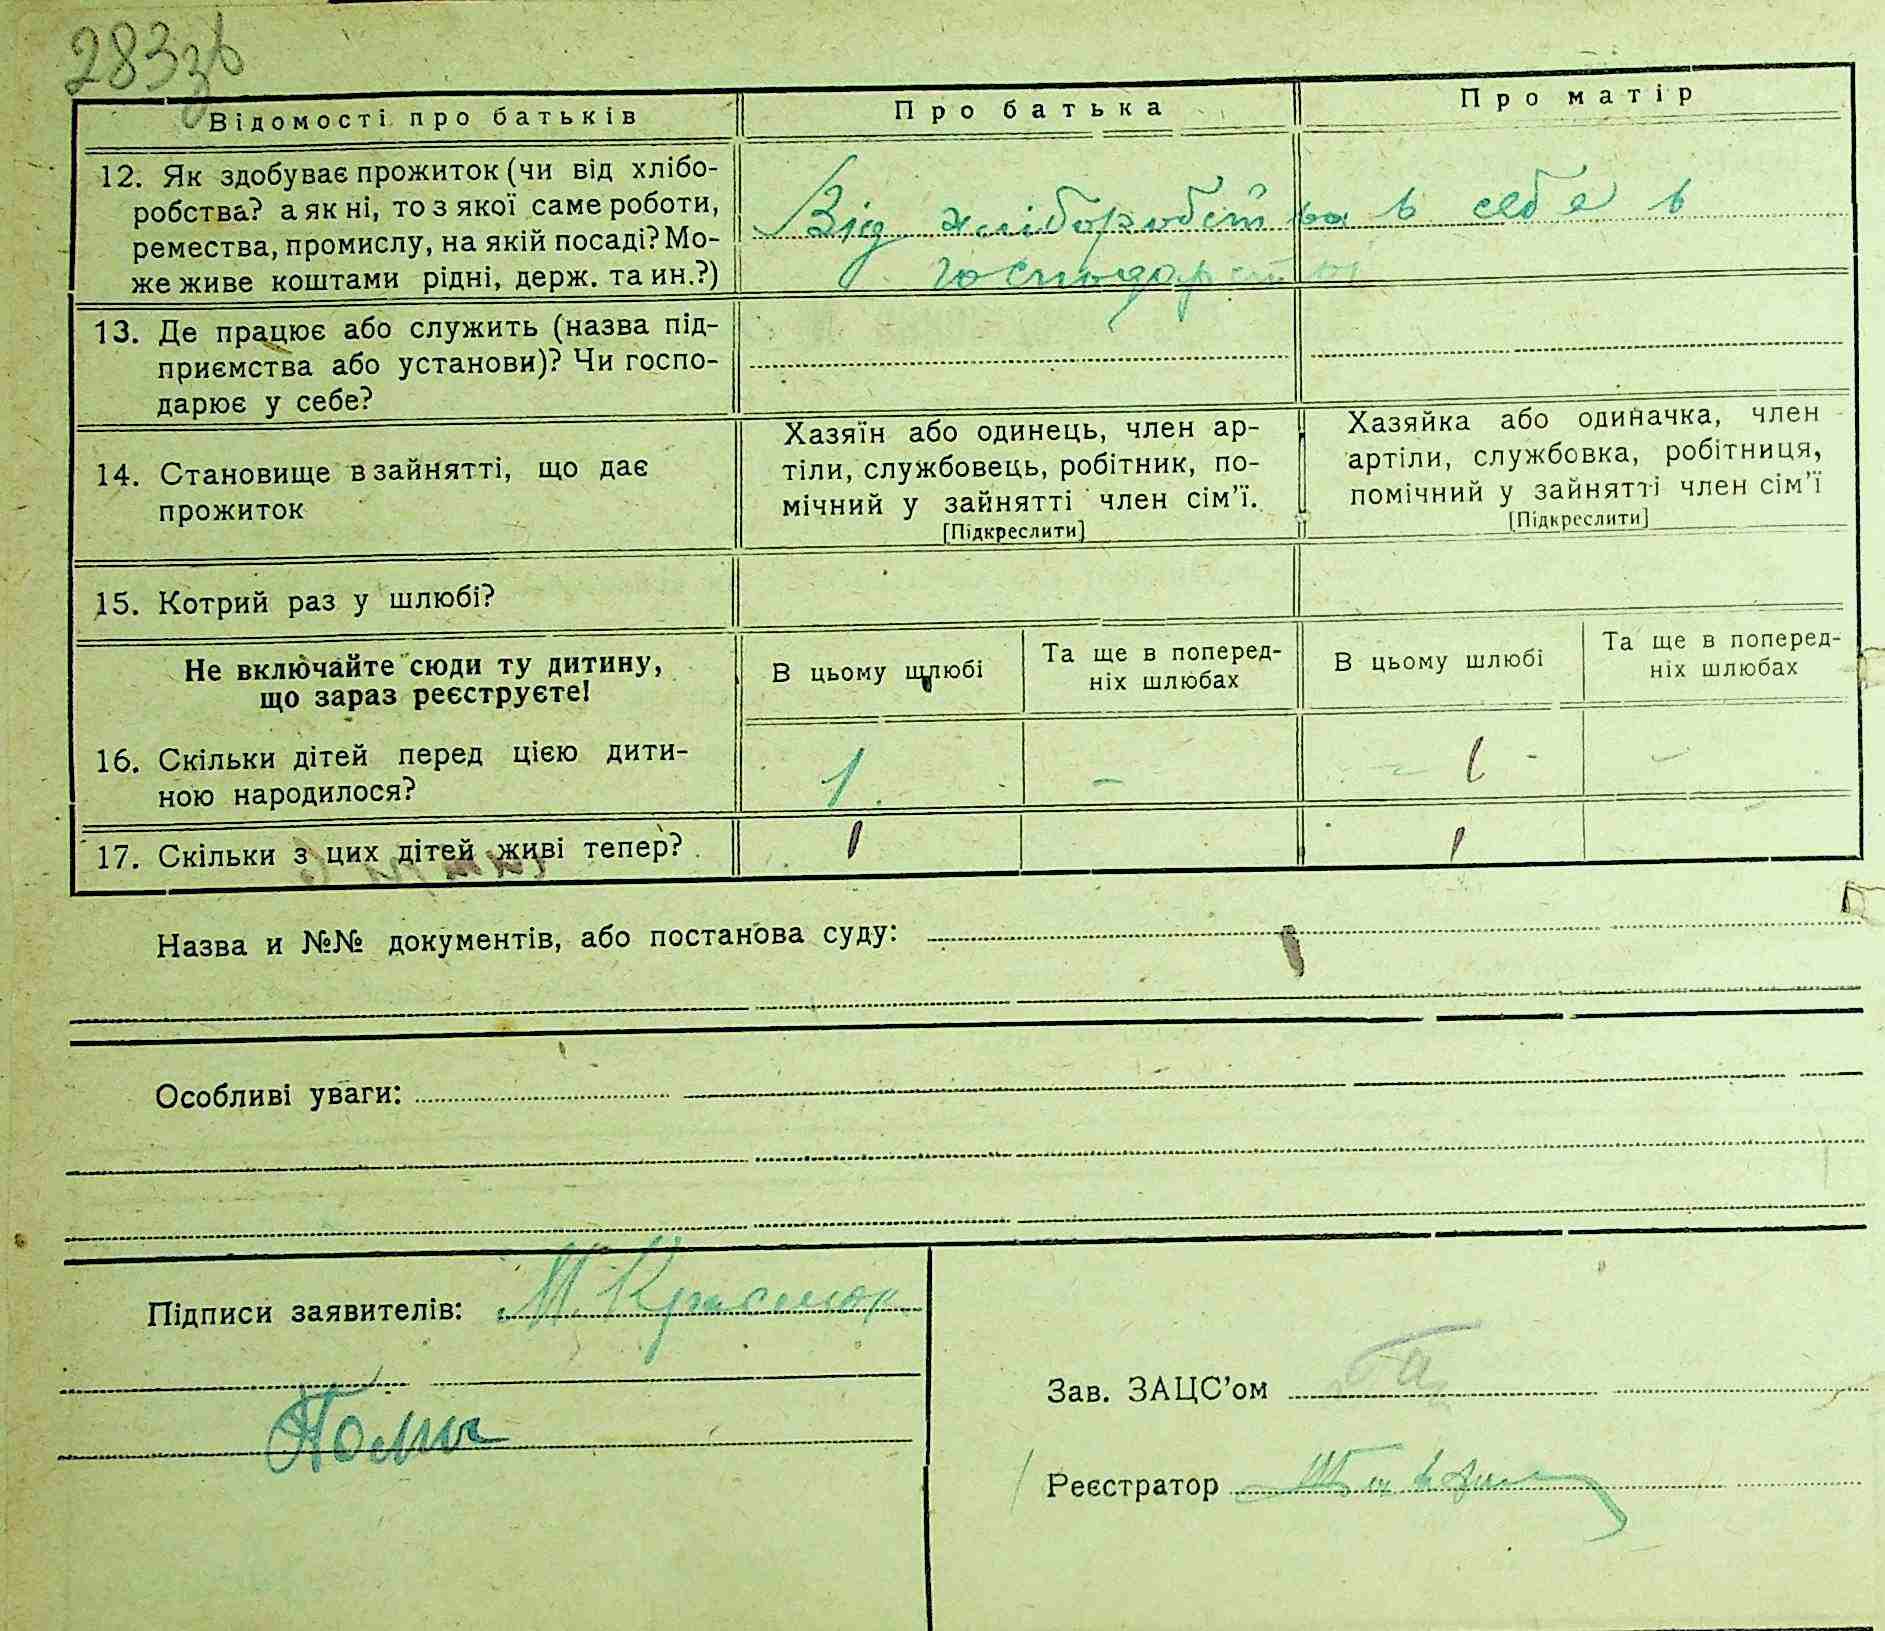 283зв
Відомості про батьків
Про батька
Про матір
12. Як здобуває прожиток (чи від хлібо-
робства? а як ні, то з якої саме роботи,
ремества, промислу, на якій посаді? Мо-
же живе коштами рідні, держ. та ин.?)
Від хліборобства в себе в
господарстві
13. Де працює або служить (назва під-
приємства або установи)? Чи госпо-
дарює у себе?
14. Становище в зайнятті, що дає
прожиток
Хазяїн або одинець, член ар-
тіли, службовець, робітник, по-
мічний у зайнятті член сім’ї.
[Підкреслити]
Хазяйка або одиначка, член
артіли, службовка, робітниця,
помічний у зайнятті член сім’ї
[Підкреслити]
15. Котрий раз у шлюбі?
Не включайте сюди ту дитину,
що зараз реєструєте!
В цьому шлюбі
Та ще в поперед-
ніх шлюбах
В цьому шлюбі
Та ще в поперед-
ніх шлюбах
16. Скільки дітей перед цією дити-
ною народилося?
1 - 1 -
17. Скільки з цих дітей живі тепер?
1 1
Назва и №№ документів, або постанова суду:
Особливі уваги:
Підписи заявителів: М.
Зав. ЗАЦС’ом
Реєстратор